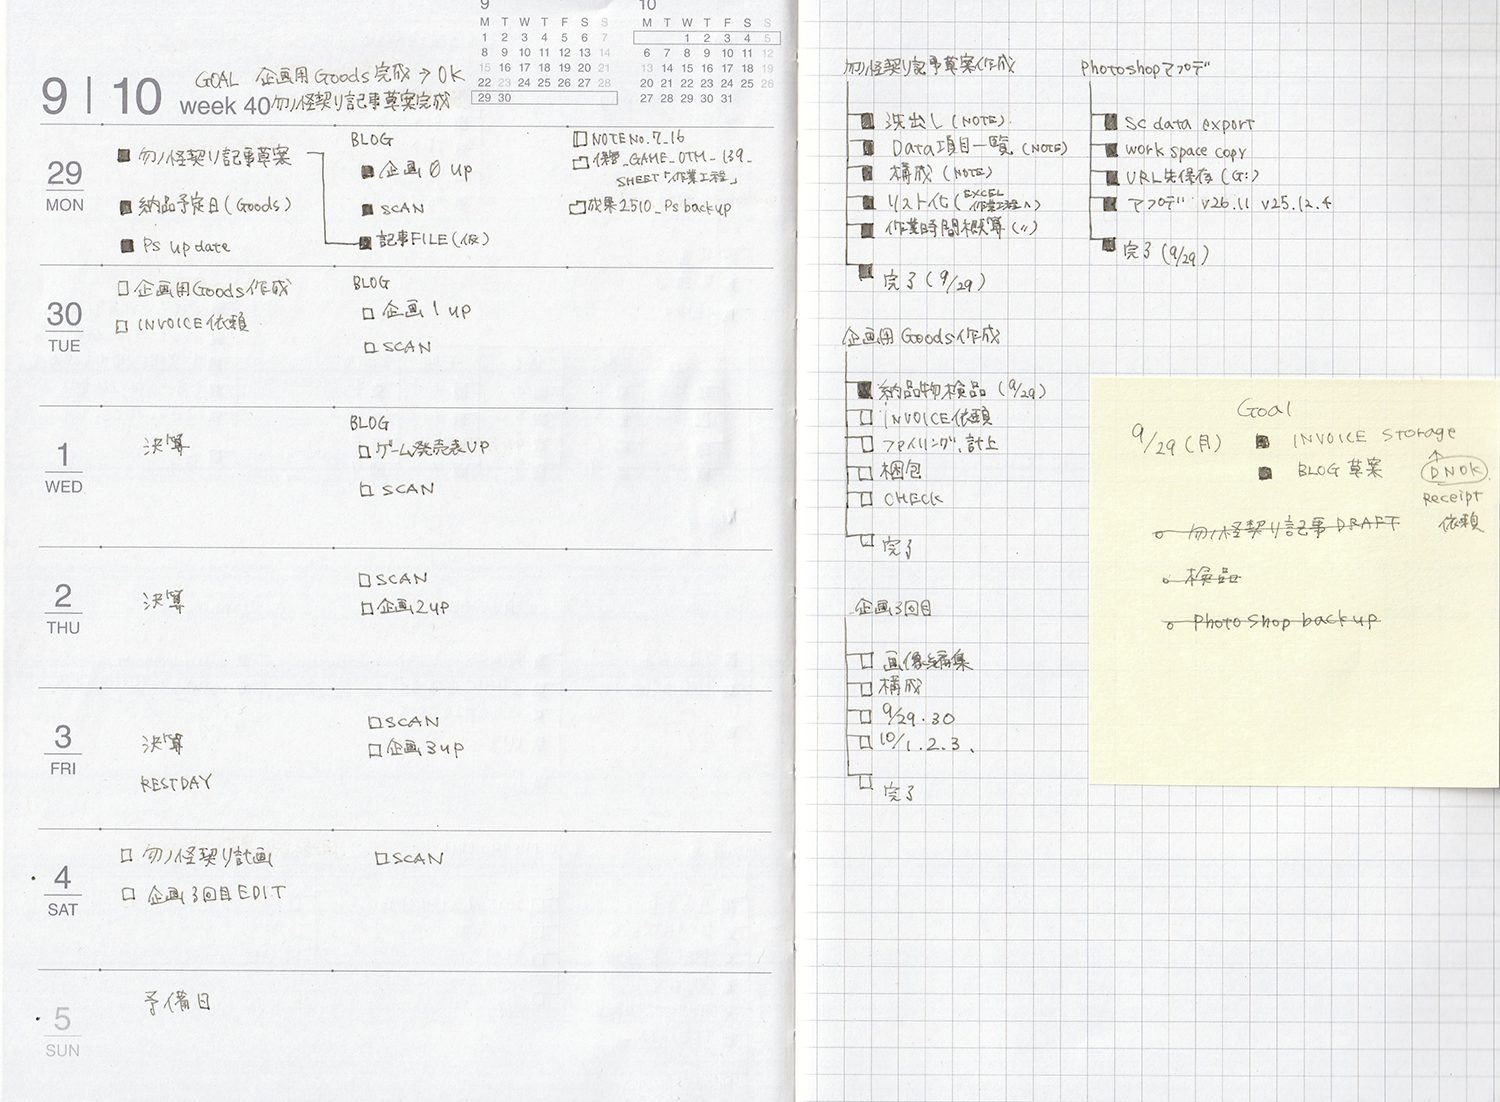 9
M T W T F S S
1 2 3 4 5 6 7
8 9 10 11 12 13 14
15 16 17 18 19 20 21
22 23 24 25 26 27 28
29 30
10
M T W T F S S
1 2 3 4 5
6 7 8 9 10 11 12
13 14 15 16 17 18 19
20 21 22 23 24 25 26
27 28 29 30 31
9 | 10
week 40
GOAL 企画用Goods完成→OK
勿ノ怪契り記事草案完成
29
MON
勿ノ怪契り記事草案
納品予定日(Goods)
Ps update
BLOG
企画0 up
SCAN
記事FILE(仮)
NOTE No.7_16
保管_GAME_OTM_139_
SHEET「作業工程」
成果2510_Ps backup
30
TUE
企画用Goods作成
INVOICE依頼
BLOG
企画1 up
SCAN
1
WED
決算
BLOG
ゲーム発売表UP
SCAN
2
THU
決算
SCAN
企画2up
3
FRI
決算
RESTDAY
SCAN
企画3up
4
SAT
勿ノ怪契り計画
企画3回目EDIT
SCAN
5
SUN
予備日
勿ノ怪契り記事草案作成
洗出し(NOTE)
Data項目一覧(NOTE)
構成(NOTE)
リスト化(EXCEL
作業工程へ)
作業時間概算(〃)
完了(9/29)
Photoshopアプデ
SC data export
work space copy
URL先保存(G:)
アプデ v26.11 v25.12.4
完了(9/29)
企画用Goods作成
納品物検品(9/29)
INVOICE依頼
ファイリング、計上
梱包
CHECK
完了
企画3回目
画像編集
構成
9/29.30
10/1.2.3.
完了
Goal
9/29(月)
INVOICE Storage
BLOG草案
↑
DNOK.
Receipt
依頼
勿ノ怪契り記事DRAFT
検品
Photoshop backup